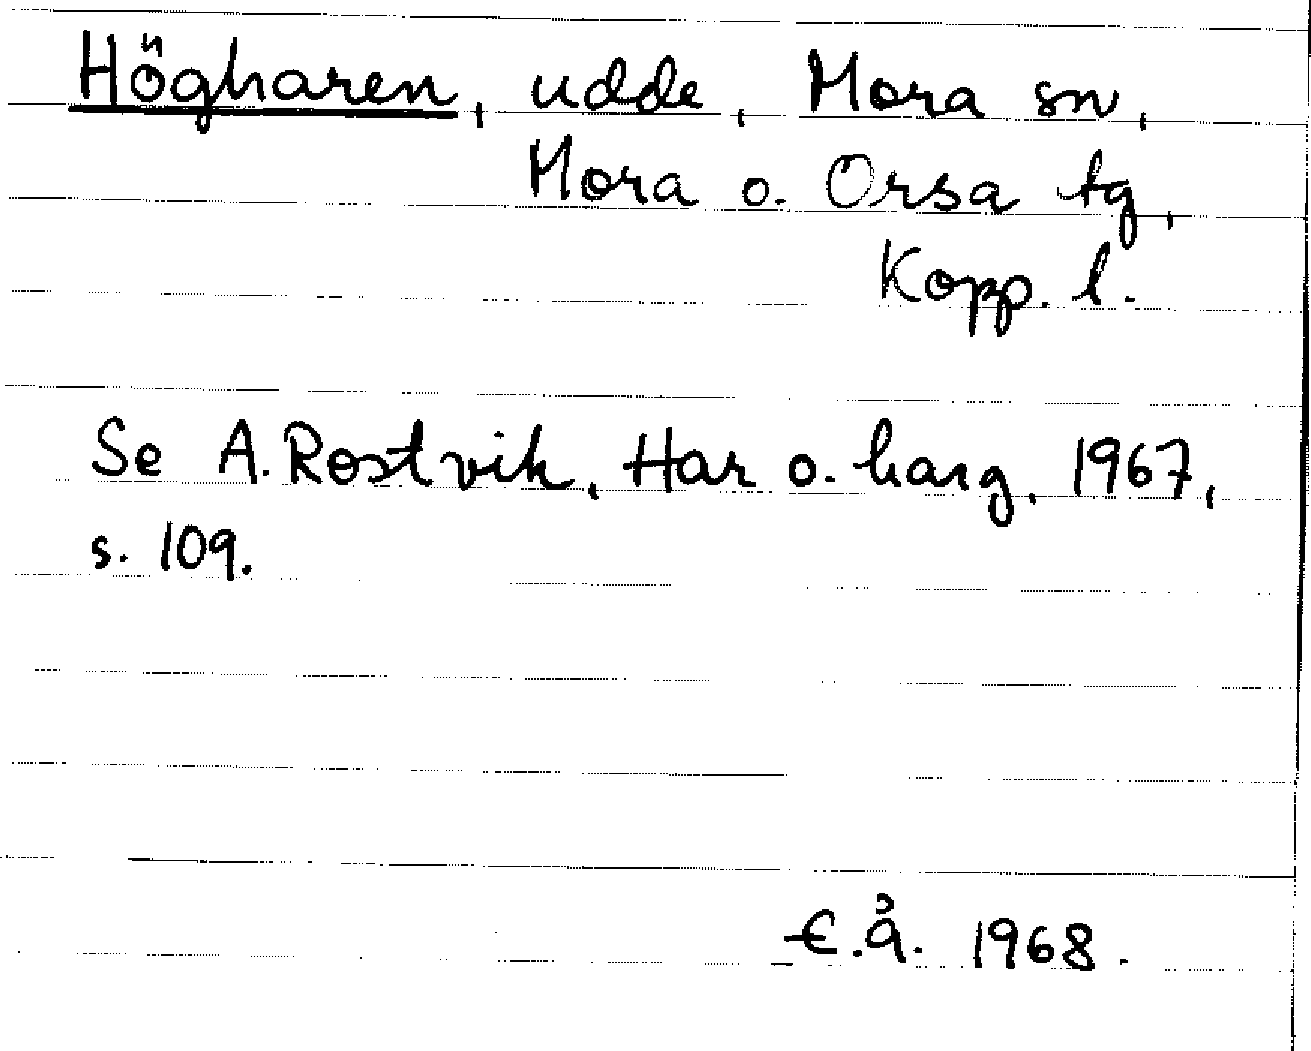 Högharen, udde, Mora sn,
Mora o. Orsa tg,
Kopp. l.
Se A. Rostvik, Har o. harg, 1967,
s. 109.
E.å. 1968.